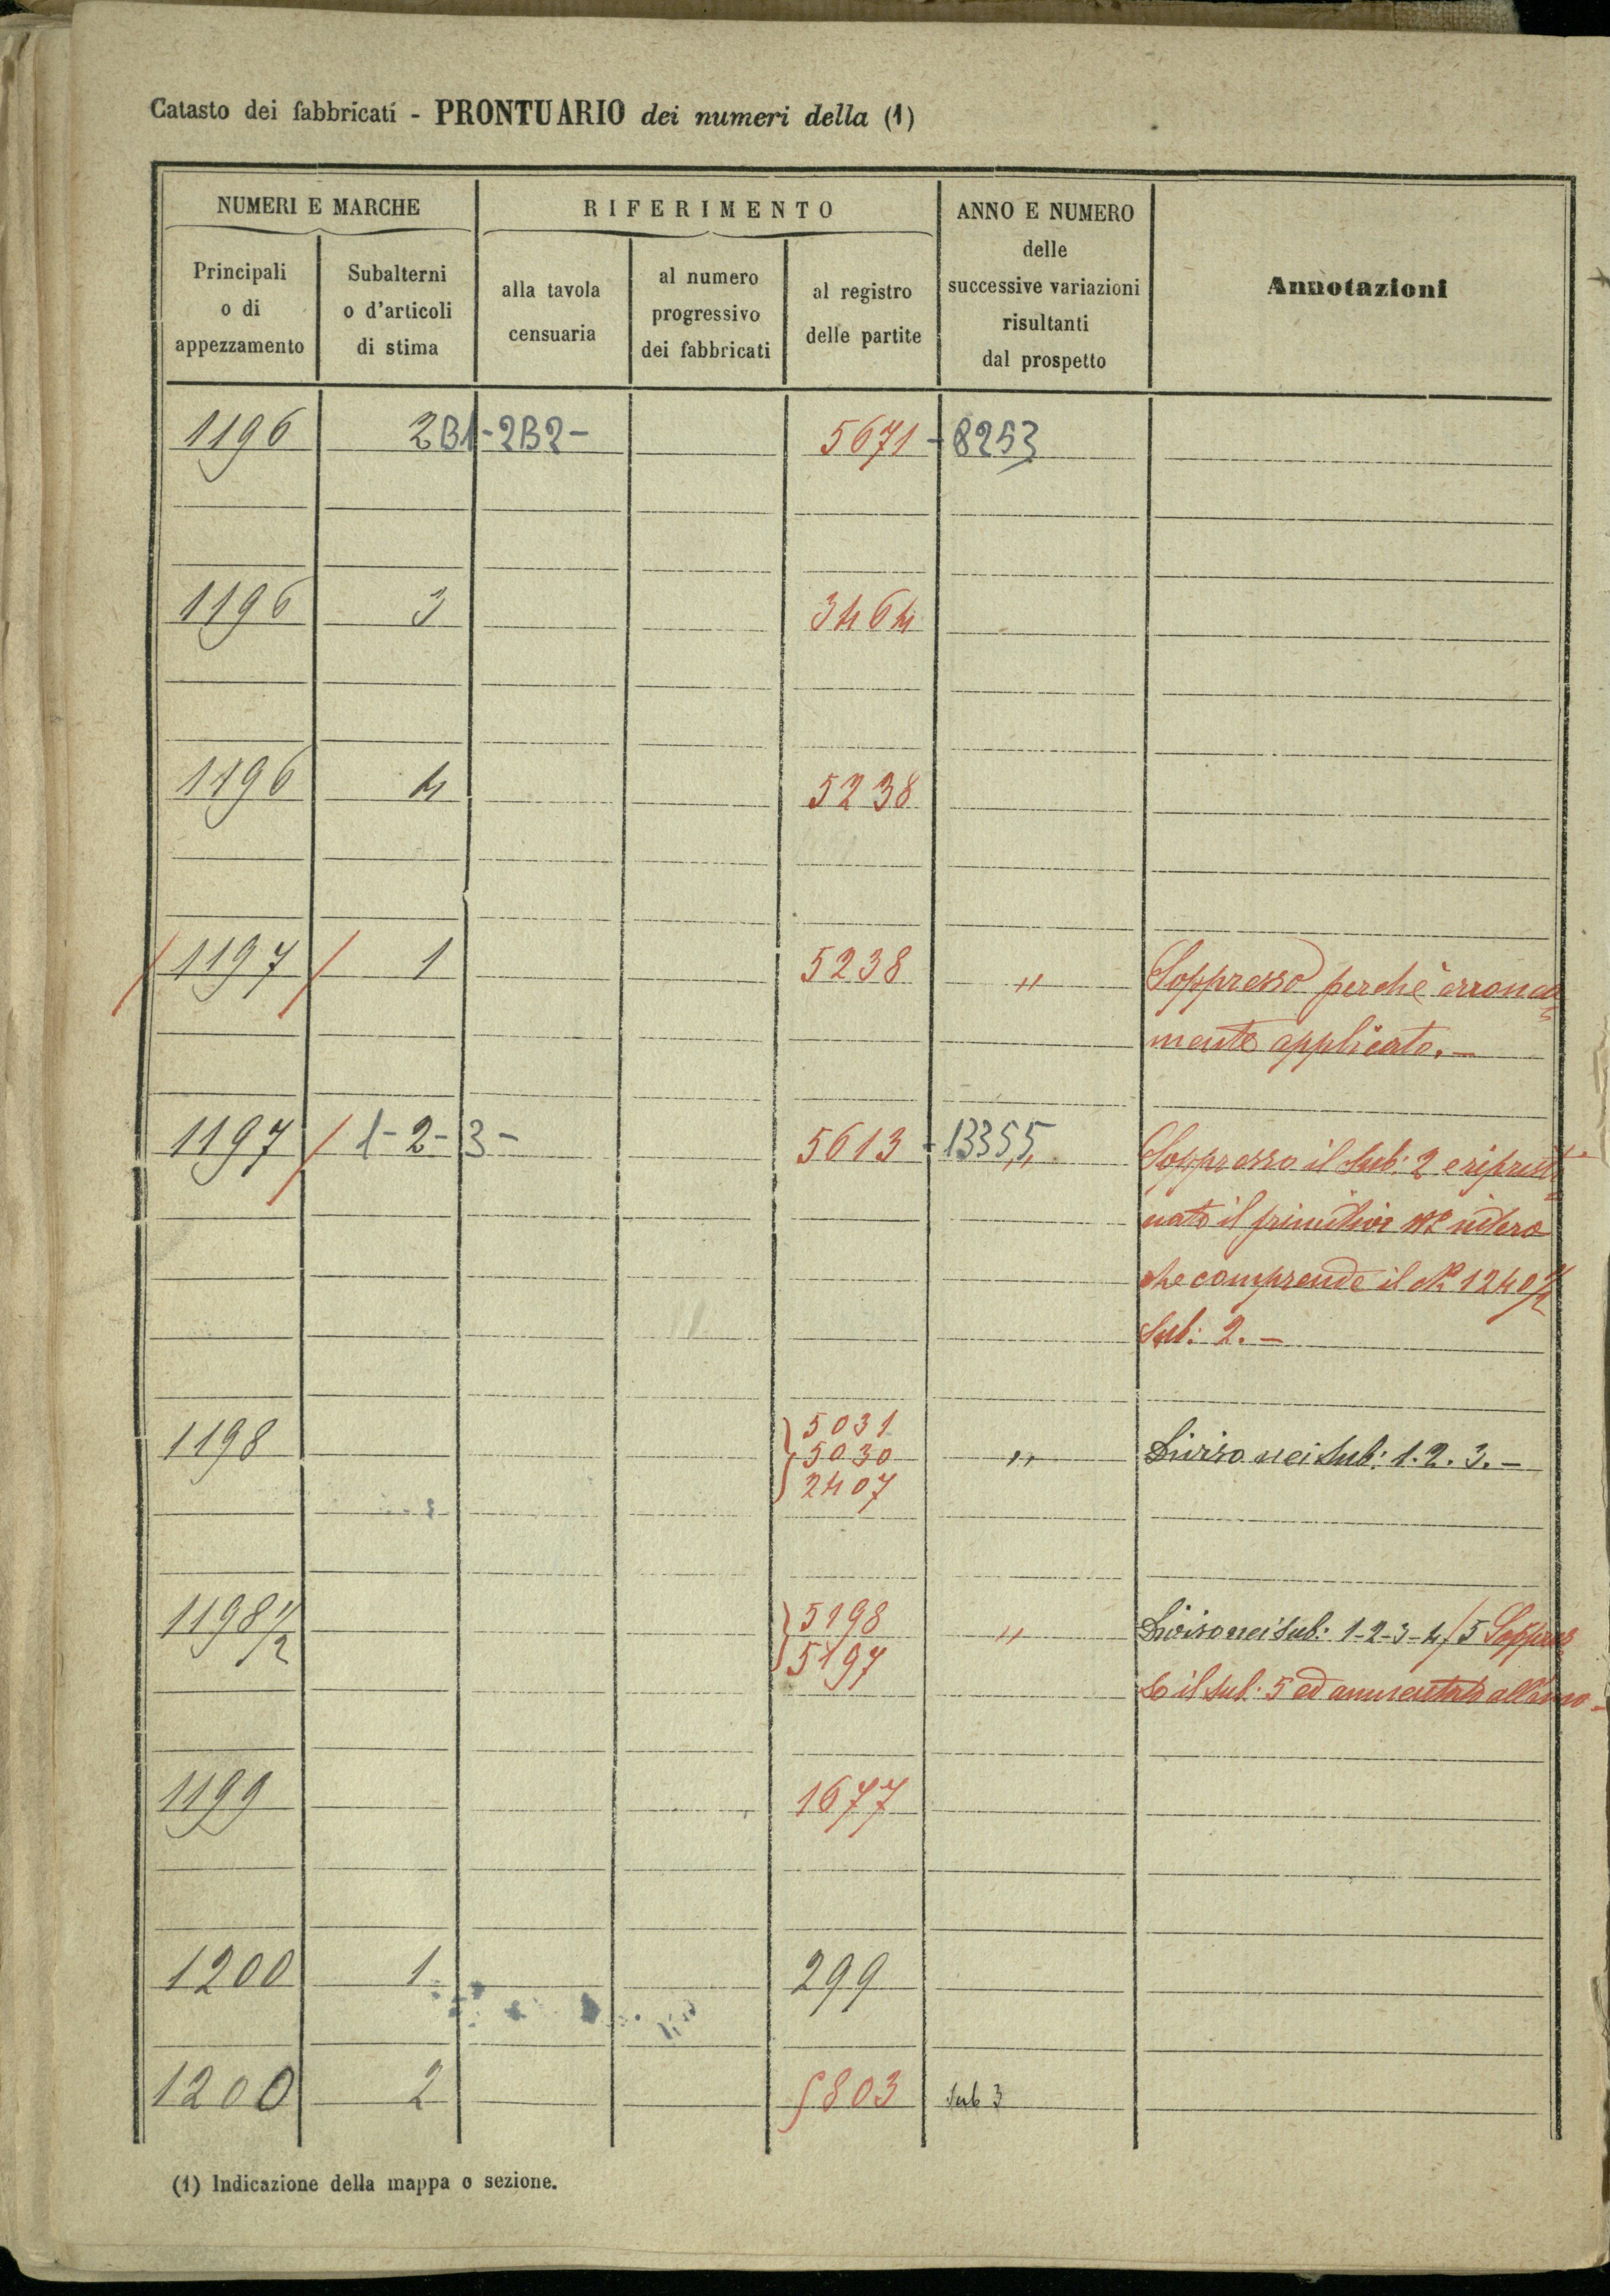 Catasto dei fabbricati - PRONTUARIO dei numeri della (1)
NUMERI E MARCHE
RIFERIMENTO
ANNO E NUMERO
delle
successive variazioni
risultanti
dal prospetto
Annotazioni
Principali
o di
appezzamento
Subalterni
o d'articoli
di stima
alla tavola
censuaria
al numero
progressivo
dei fabbricati
al registro
delle partite
1196 2B1-2B2- 5671-8253
1196 3 3464
1196 4 5238
/1197 / 1 5238 " Soppresso perchè erronea
mente applicato. -
1197 / 1-2-3- 5613-13355 Soppresso il sub: 2 e riprist
nato il primitivo N.º intero
che comprende il N.º 1240 1/2
sub: 2. -
1198 5031 " Diviso nei sub: 1.2.3. -
5030
2407
1198 1/2 5198 " Diviso nei sub: 1-2-3-4/5 Soppres
5197 so il sub: 5 ed aumentato
1199 1677
1200 1 299
1200 2 5803 sub 3
(1) Indicazione della mappa o sezione.